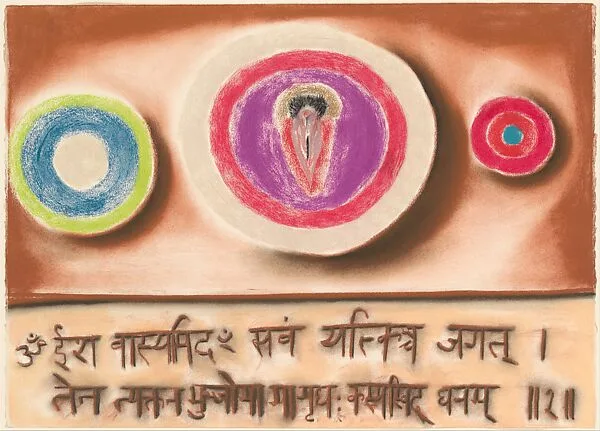 ॐ ईशा वास्यमिदꣳ सवं यत्किञ्च जगत् ।
तेन त्यक्तन भुञ्जोथा मा गृधः कस्यसिद् धनम् ॥१॥